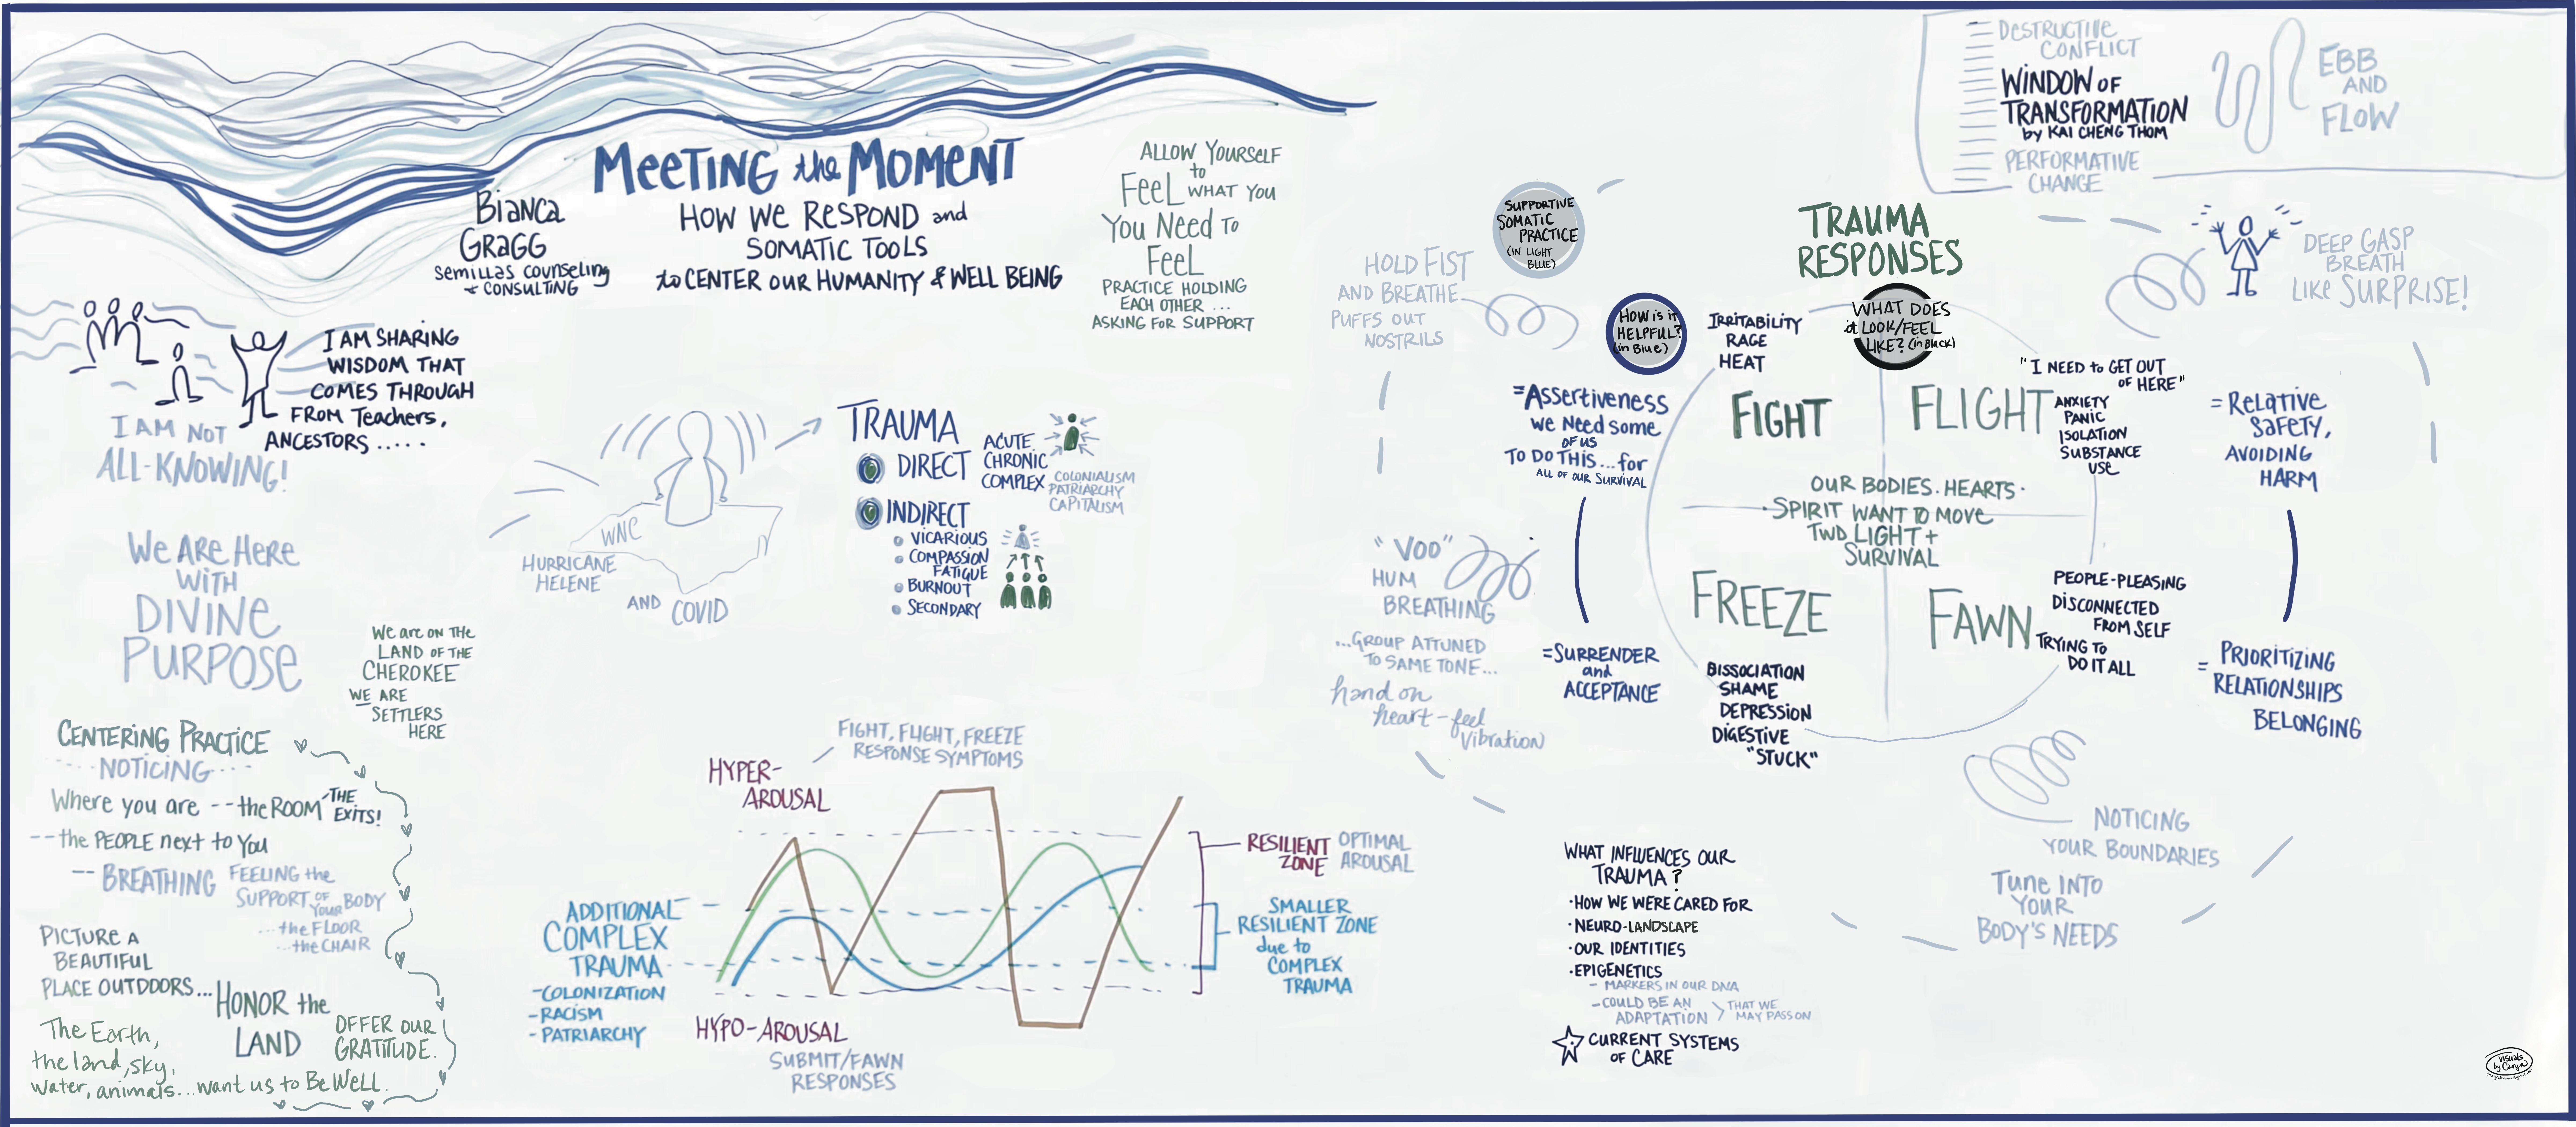 MEETING the MOMENT
HOW WE RESPOND and
SOMATIC TOOLS
to CENTER OUR HUMANITY & WELL BEING
BiANCA
GRAGG
Semillas Counseling
+ CONSULTING
I AM SHARING
WISDOM THAT
COMES THROUGH
FROM Teachers,
ANCESTORS .....
I AM NOT
ALL-KNOWING!
We ARE HeRe
WiTH
DIVINE
PURPOSE
We are ON THE
LAND OF THE
CHEROKEE
WE ARE
SETTLERS
HERE
CENTERING PRACTICE
NOTICING
Where you are -- the ROOM THE
EXITS!
-- the PEOPLE next to You
-- BREATHING FEELING the
SUPPORT OF
YOUR BODY
... the FLOOR
... the CHAIR
PICTURE A
BEAUTIFUL
PLACE OUTDOORS...
HONOR the
LAND
OFFER OUR
GRATITUDE.
The Earth,
the land, sky,
water, animals... want us to Be Well.
ALLOW YOURSELF
to
FeeL WHAT YOU
YOU NeeD TO
FeeL
PRACTICE HOLDING
EACH OTHER ...
ASKING FOR SUPPORT
WNC
HURRICANE
HELENE
AND COVID
TRAUMA
DIRECT
ACUTE
CHRONIC
COMPLEX
COLONIALISM
PATRIARCHY
CAPITALISM
INDIRECT
VICARIOUS
COMPASSION
FATIGUE
BURNOUT
SECONDARY
FIGHT, FLIGHT, FREEZE
RESPONSE SYMPTOMS
HYPER-
AROUSAL
ADDITIONAL
COMPLEX
TRAUMA
- COLONIZATION
- RACISM
- PATRIARCHY
HYPO-AROUSAL
SUBMIT/FAWN
RESPONSES
RESILIENT
ZONE
OPTIMAL
AROUSAL
SMALLER
RESILIENT ZONE
due to
COMPLEX
TRAUMA
DESTRUCTIVE
CONFLICT
WINDOW OF
TRANSFORMATION
by KAI CHENG THOM
PERFORMATIVE
CHANGE
EBB
AND
FLOW
SUPPORTIVE
SOMATIC
PRACTICE
(IN LIGHT
BLUE)
HOW is it
HELPFUL?
(in Blue)
TRAUMA
RESPONSES
WHAT DOES
it LOOK/FEEL
LIKE? (in Black)
HOLD FIST
AND BREATHE
PUFFS OUT
NOSTRILS
IRRITABILITY
RAGE
HEAT
=Assertiveness
we Need some
OF US
TO DO THIS... for
ALL OF OUR SURVIVAL
FIGHT
FLIGHT
"I NEED to GET OUT
OF HERE"
ANXIETY
PANIC
ISOLATION
SUBSTANCE
USe
= RELATIVE
SAFETY,
AVOIDING
HARM
DEEP GASP
BREATH
LIKe SURPRISE!
OUR BODIES. HEARTS.
SPIRIT WANT TO MOVE
TWD LIGHT +
SURVIVAL
"VOO"
HUM
BREATHING
...GROUP ATTUNED
TO SAME TONE...
hand on
heart - feel
Vibration)
=SURRENDER
and
ACCEPTANCE
FREEZE
DISSOCIATION
SHAME
DEPRESSION
DIGESTIVE
"STUCK"
FAWN
PEOPLE-PLEASING
DISCONNECTED
FROM SELF
TRYING TO
DO IT ALL
= PRIORITIZING
RELATIONSHIPS
BELONGING
NOTICING
YOUR BOUNDARIES
TUNe INTO
YOUR
BODY'S NEEDS
WHAT INFLUENCES OUR
TRAUMA?
·HOW WE WERE CARED FOR
·NEURO-LANDSCAPE
·OUR IDENTITIES
·EPIGENETICS
- MARKERS IN OUR DNA
- COULD BE AN
ADAPTATION
THAT WE
MAY PASS ON
CURRENT SYSTEMS
OF CARE
Visuals
by Caryn